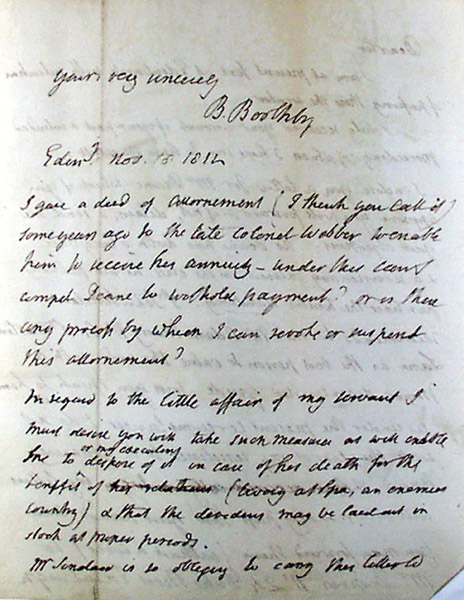 Yours very sincerely
B. Boothby
Edinr. Nov. 18 1812
I gave a deed of Attornement (I think you call it)
some years ago to the late Colonel Webber to enable
him to receive his annuity – under this can I
compel Deane to withold payment? or is there
any process by which I can revoke or suspend
this attornement?
In regard to the little affair of my servant I
must desire you will take such measures as will enable
or my executors
me to dispose of it in case of her death for the
benefit of her relations (being at Spa, an enemies
country) & that the dividens may be laid out in
stock at proper periods.
Mr Sinclair is so obliging to carry this letter to